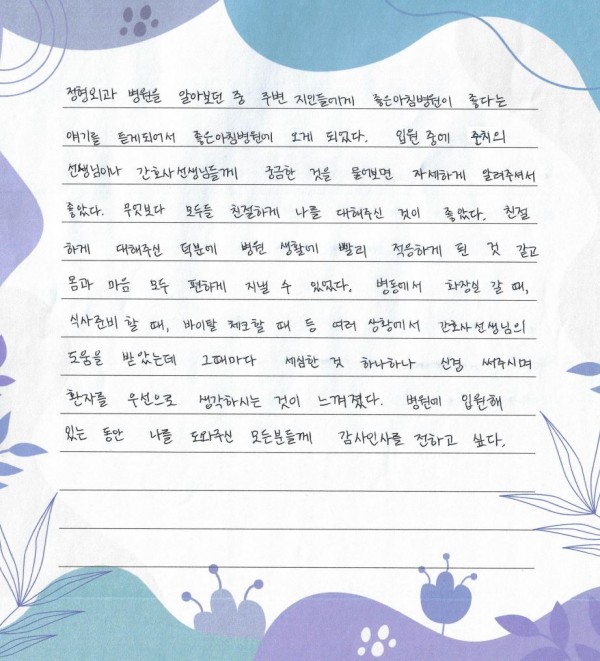 정형외과 병원을 알아보던 중 주변 지인들에게 좋은아침병원이 좋다는
얘기를 듣게되어서 좋은아침병원에 오게 되었다. 입원 중에 주치의
선생님이나 간호사선생님들께 궁금한 것을 물어보면 자세하게 알려주셔서
좋았다. 무엇보다 모두들 친절하게 나를 대해주신 것이 좋았다. 친절
하게 대해주신 덕분에 병원 생활에 빨리 적응하게 된 것 같고
몸과 마음 모두 편하게 지낼 수 있었다. 병동에서 화장실 갈 때,
식사준비 할 때, 바이탈 체크할 때 등 여러 상황에서 간호사선생님의
도움을 받았는데 그때마다 세심한 것 하나하나 신경 써주시며
환자를 우선으로 생각하시는 것이 느껴졌다. 병원에 입원해
있는 동안 나를 도와주신 모든분들께 감사인사를 전하고 싶다.